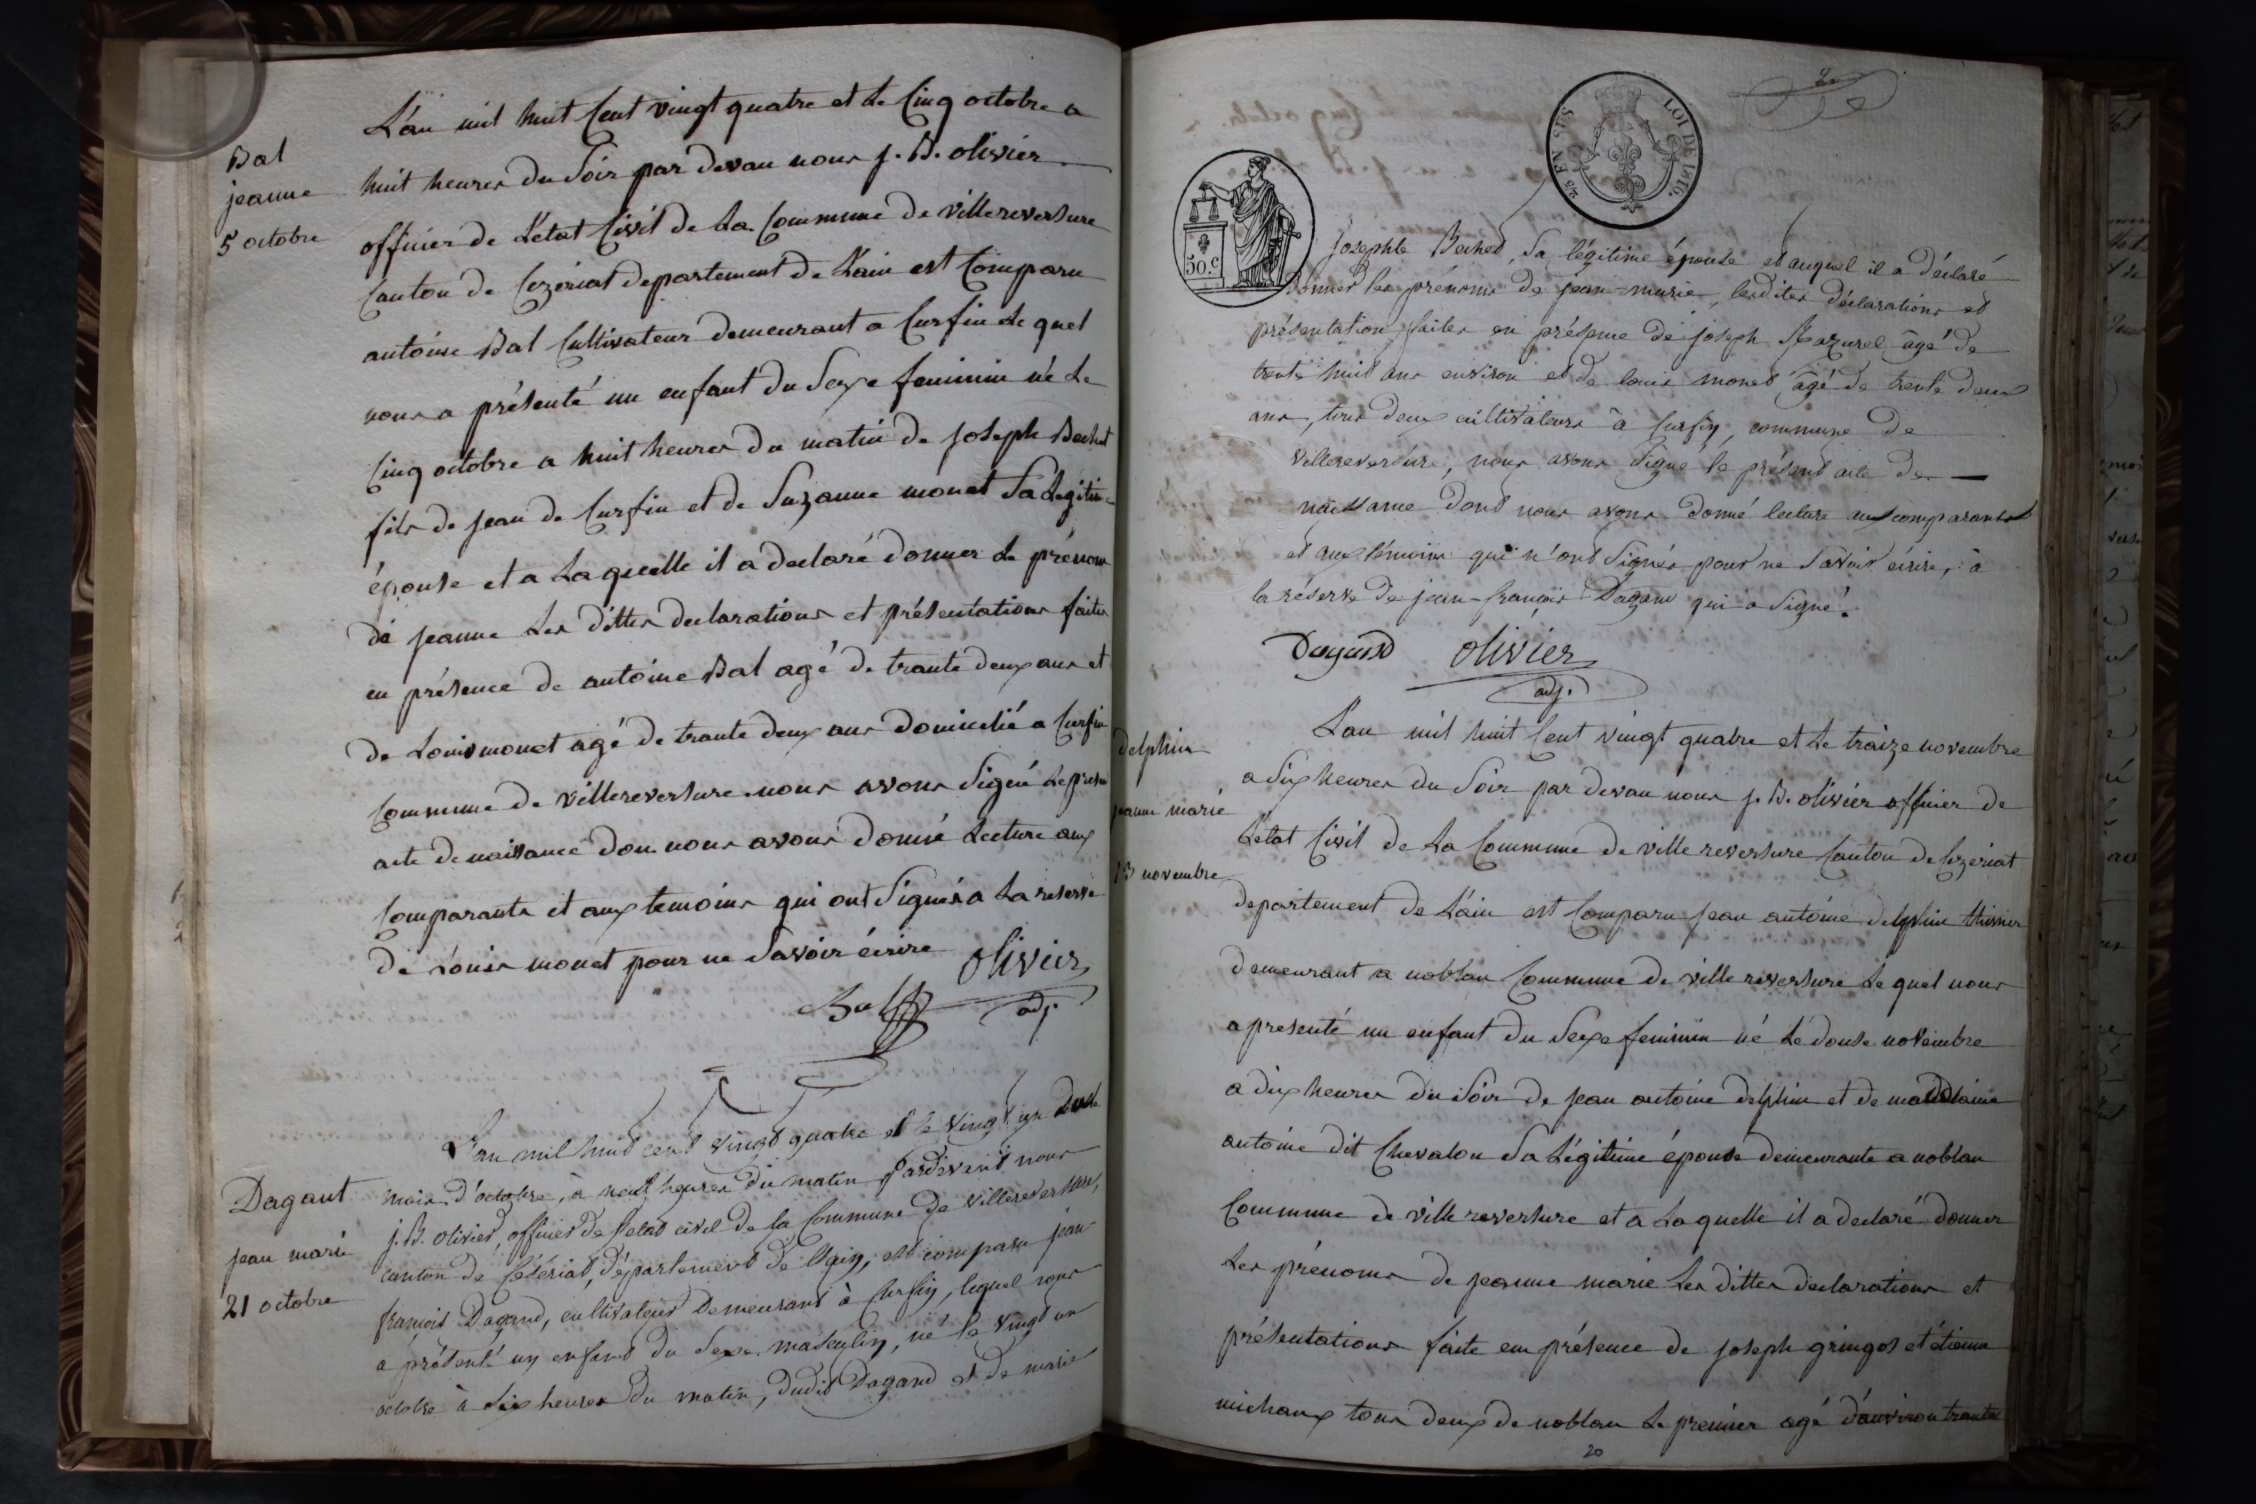 L'an mil huit Cent vingt quatre et Le Cinq octobre a
Bal
jeanne
5 octobre
huit heures du Soir par devan nous j. B. olivier
officier de L'etat Civil de La Commune de villereversure
Canton de Cezeriat departement de L'ain est Comparu
antoine Bal Cultivateur demeurant a Curfin Le quel
nous a présenté un enfant du Sexe feminin né Le
Cinq octobre a huit heures du matin de joseph Bechet
fils de jean de Curfin et de Suzanne monet Sa Legitime
épouse et a Laquelle il a declaré donner Le prénom
de jeanne Les dittes declarations et présentations faites
en présence de antoine Bal agé de trante deux ans et
de Louis monet agé de trante deux ans domicilié a Curfin
Commune de villereversure nous avons Signé Le présen
acte de naissance don nous avons donné Lecture aux
Comparants et aux temoins qui ont Signés a La reserve
de Louis monet pour ne Savoir écrire olivier
Bal adj.
L'an mil huit cent vingt quatre et le vingt un du
Dagant
jean marie
21 octobre
mois d'octobre, à neuf heures du matin pardevant nous
j. B. olivier, officier de l'etat civil de la Commune de Villereversure,
canton de Cézériat, département de l'ain, est comparu jean
françois Dagand, cultivateur demeurant à Curfin, lequel nous
a présenté un enfant du Sexe masculin, né le vingt un
octobre à Six heures du matin, dudit Dagand et de marie
50. c
LOI DE 1816.
25 EN SUS
josephte Bechet, Sa légitime épouse et auquel il a déclaré
donner les prénoms de jean-marie, lesdites déclarations et
présentation faites en présence de joseph Mazurel âgé de
trente huit ans environ et de louis monet âgé de trente deux
ans, tous deux cultivateurs à Curfin, commune de
Villereversure, nous avons Signé le présent acte de
naissance dont nous avons donné lecture aux comparants
et aux témoins qui n'ont Signés pour ne Savoir écrire, à
la réserve de jean-françois Dagand qui a Signé.
Dagand olivier
adj.
delphin
jeanne marie
13 novembre
L'an mil huit Cent vingt quatre et Le traize novembre
a Six heures du Soir par devan nous j. B. olivier officier de
L'etat Civil de La Commune de ville reversure Canton de Cezeriat
departement de L'ain est Comparu jean antoine delphin thissier
demeurant a noblan Commune de ville reversure Le quel nous
a presenté un enfant du Sexe feminin né Le douse novembre
a dix heures du Soir de jean antoine delphin et de madelaine
antoine dit Chevalon Sa Légitime épouse demeurante a noblan
Commune de ville reversure et a La quelle il a declaré donner
Les prénoms de jeanne marie Les dittes declarations et
présentations faite en présence de joseph gringos et étienne
michaux tous deux de noblan Le premier agé d'anviron trante
20